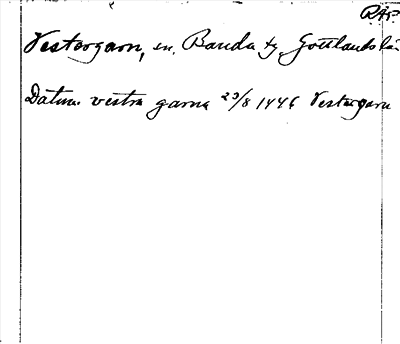 RAp.
Vestergarn, sn, Banda tg, Gottlands län
Datum. vestra garna 23/8 1446 Vestergarn